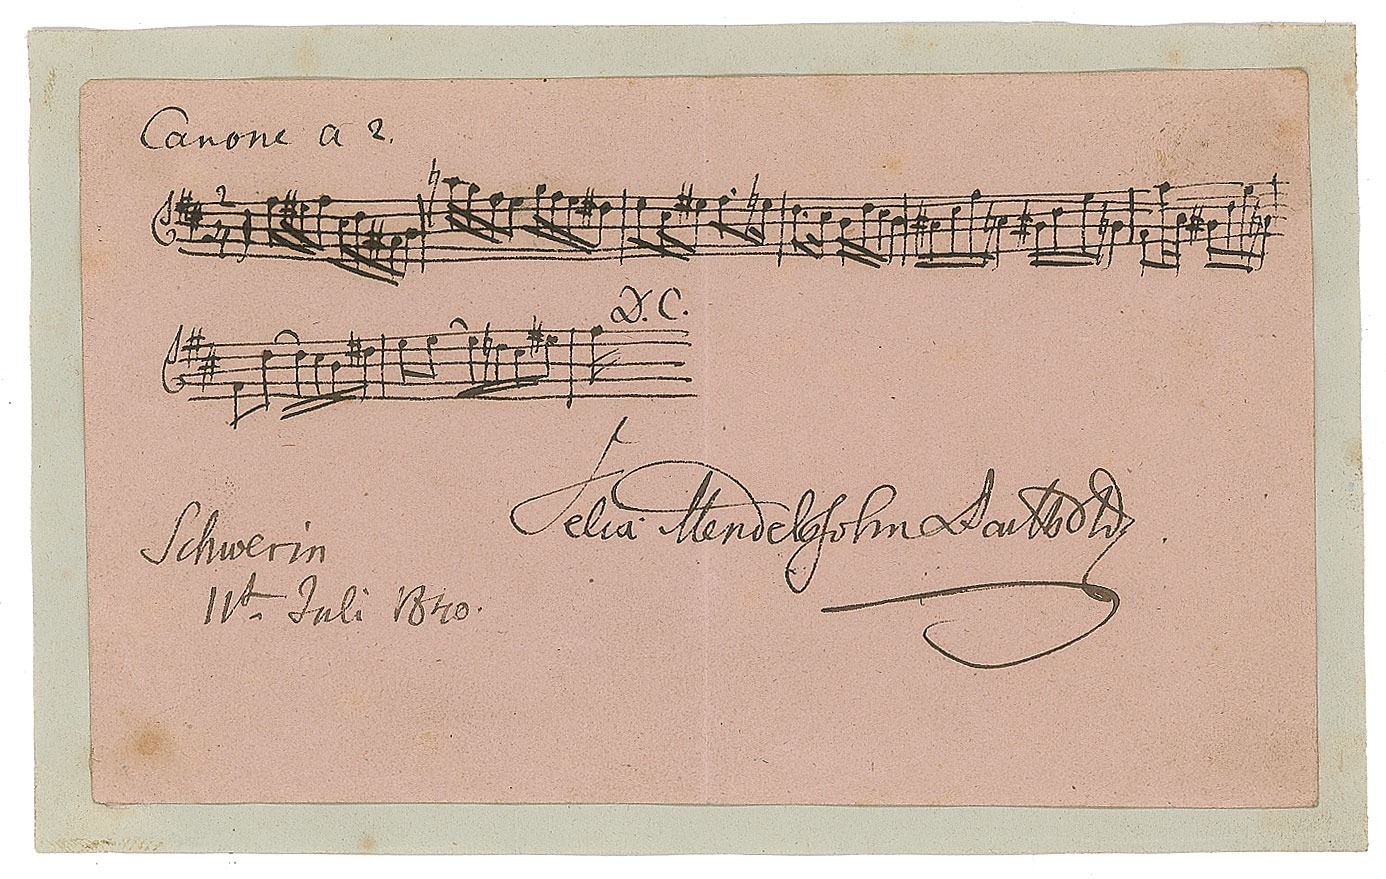 Canone a 2.
D.C.
Felix Mendelssohn Bartholdy.
Schwerin
11ten Juli 1840.